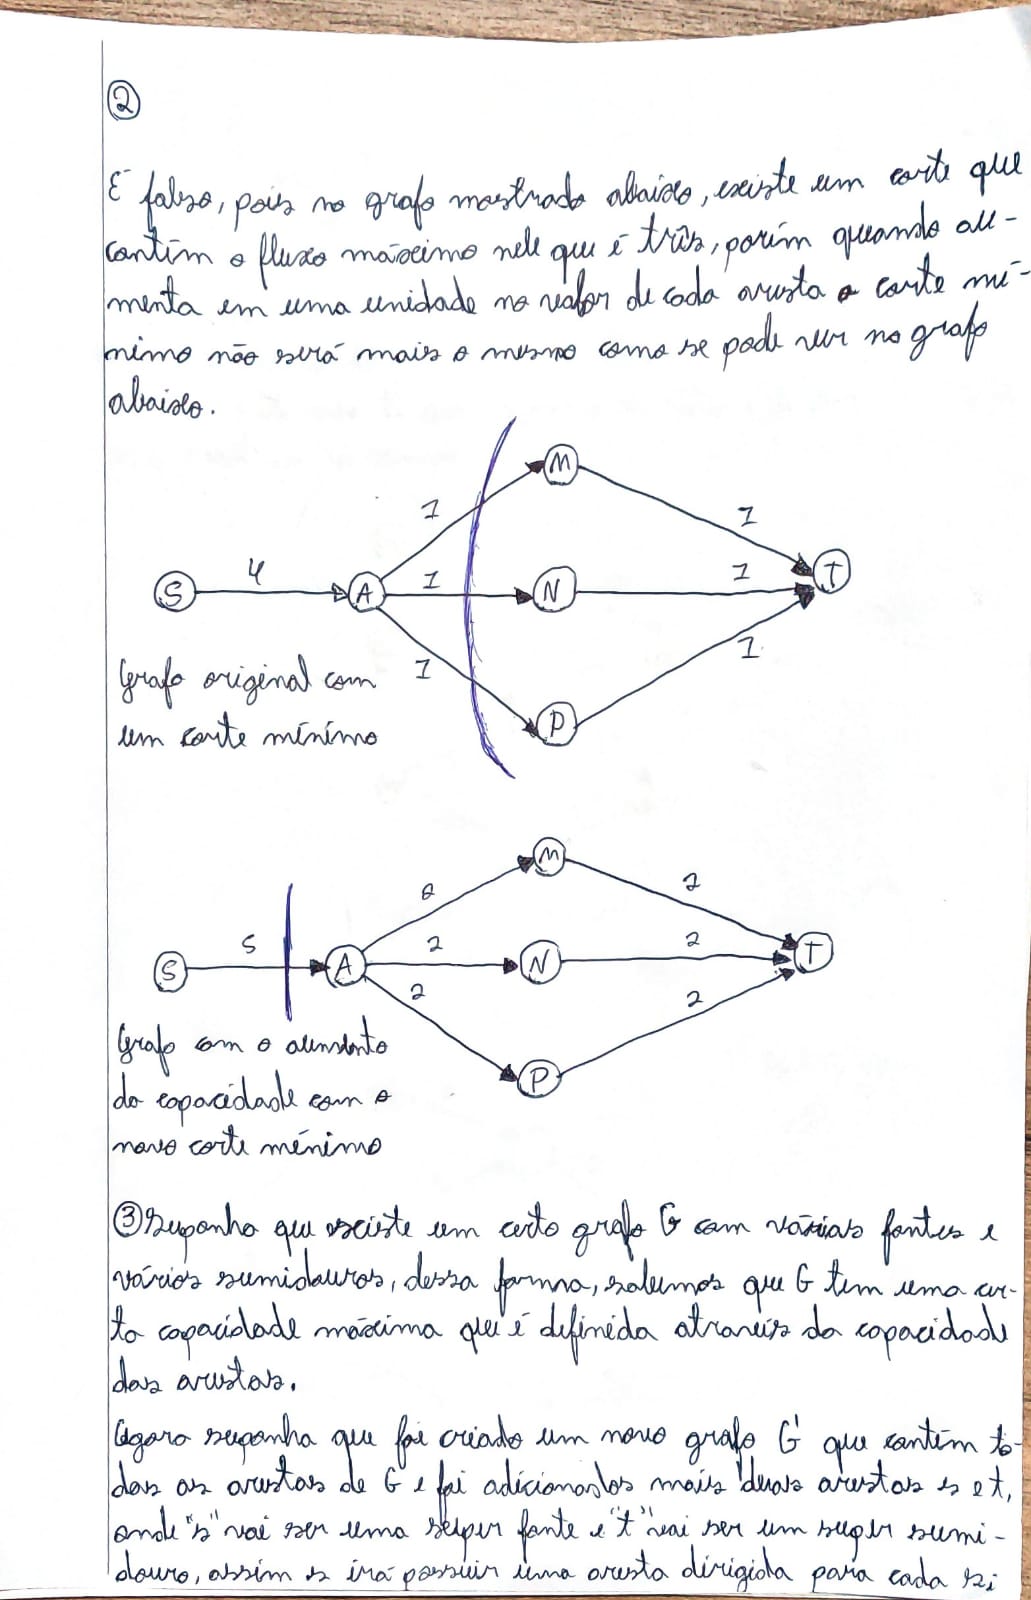 2
É falso, pois no grafo mostrado abaixo, existe um corte que
contém o fluxo máximo nele que é três, porém quando au-
menta em uma unidade no valor de cada aresta o corte mí-
nimo não será mais o mesmo como se pode ver no grafo
abaixo.
M
1
1
S
4
A
1
N
1
T
1
1
P
Grafo original com
um corte mínimo
M
2
2
S
5
A
2
N
2
T
2
2
P
Grafo com o aumento
da capacidade com o
novo corte mínimo
3 Suponha que existe um certo grafo G com várias fontes e
vários sumidouros, dessa forma, sabemos que G tem uma cer-
ta capacidade máxima que é definida através da capacidade
das arestas.
Agora suponha que foi criado um novo grafo G' que contém to-
das as arestas de G e foi adicionados mais duas arestas s e t,
onde "s" vai ser uma super fonte e "t" vai ser um super sumi-
douro, assim s irá possuir uma aresta dirigida para cada si